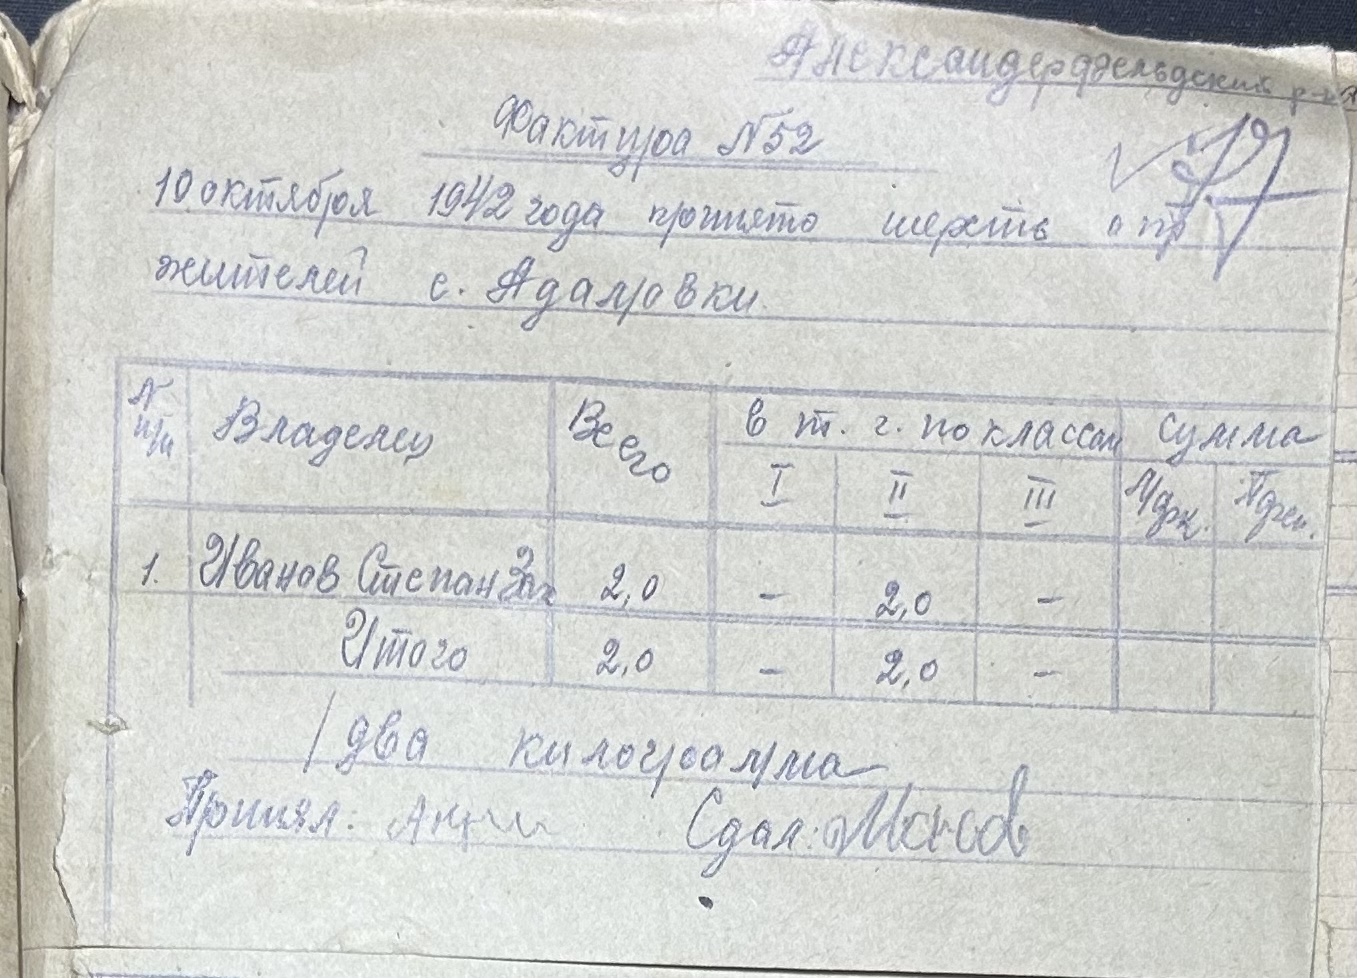 Александерфельдский р-н
Фактура №52
10 октября 1942 года принято шерсть от
жителей с. Адамовки.
N п/п Владелец Всего в т. г. по классам Сумма
I II III
1. Иванов Степан Зах 2,0 – 2,0 –
Итого 2,0 – 2,0 –
/два килограмма
Принял: Сдал: